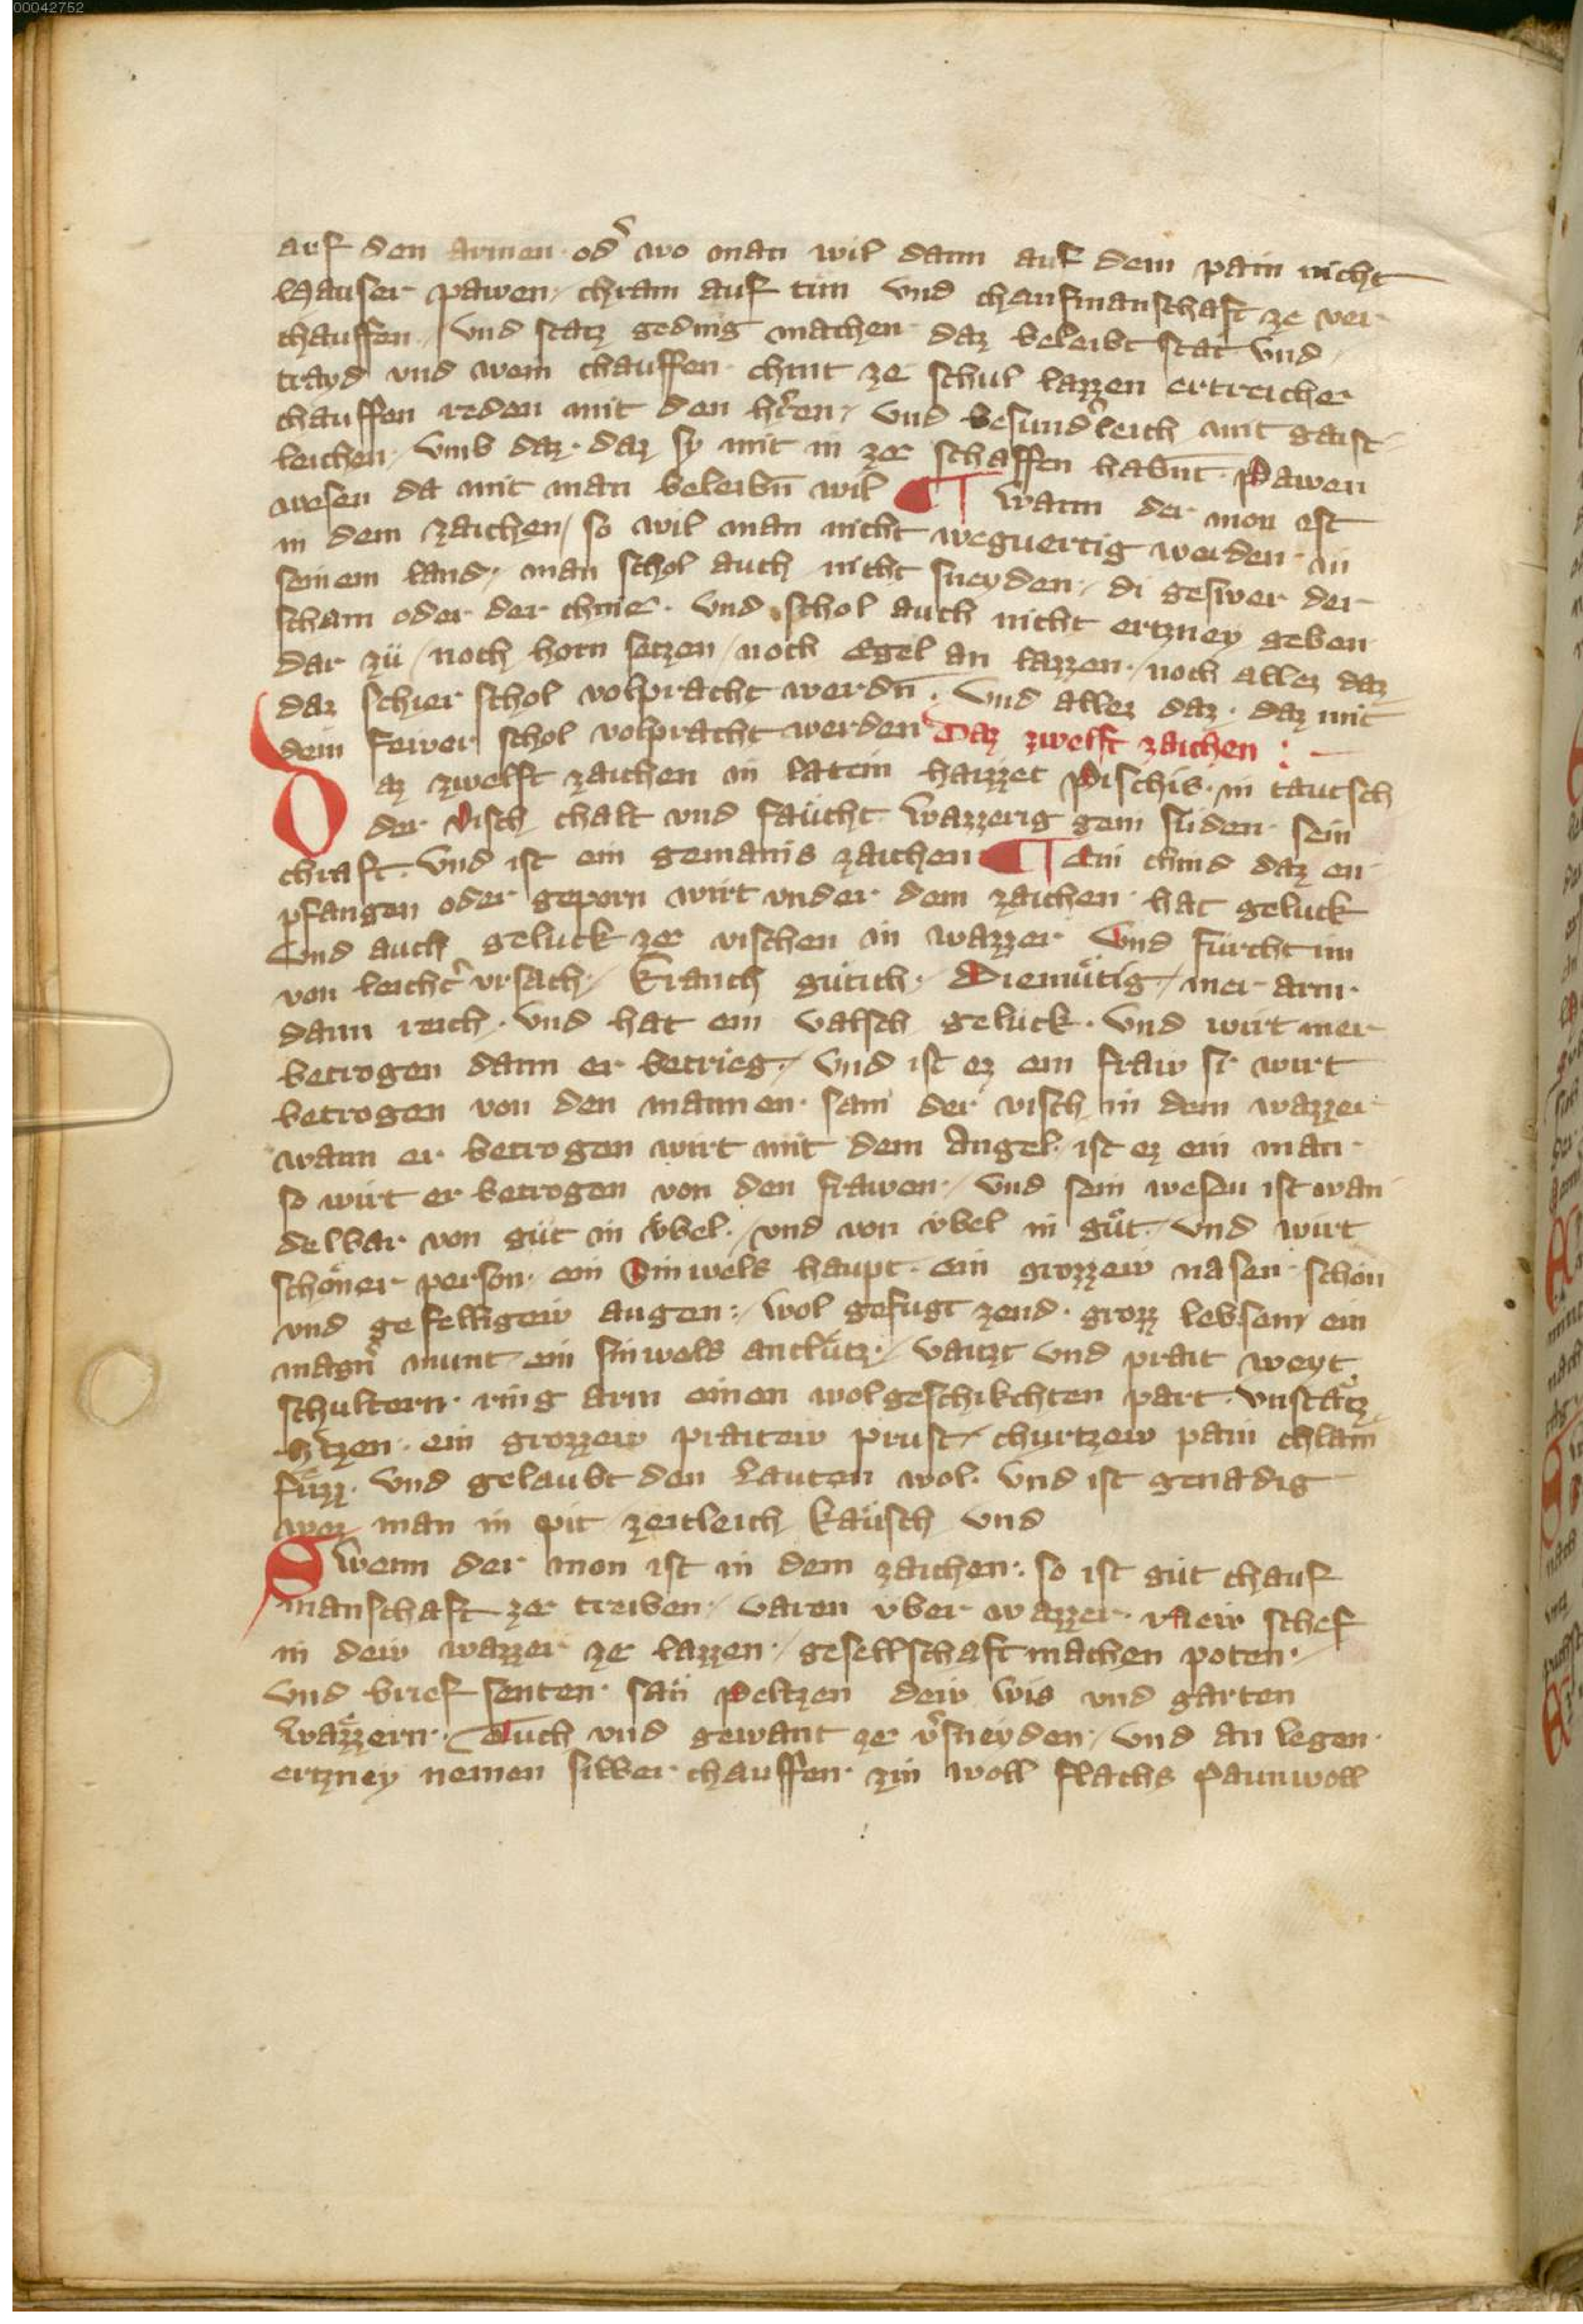 00042752
auf den armen od̛ wo man wil dann auf dem pain nicht
Hauser pawen / chram auf tün vnd chaufmanschaft ze ver
chauffen / vnd stätz geding machen daz beleibt stat vnd /
trayd vnd wein chauffen · chint ze schul lazzen ertreicher
chauffen reden mit den h̛ren / vnd besund̛leich mit gaist
leichen / vmb daz · daz sy mit in ze schaffen habn̄t · Pawen
wesen da mit man beleibn̄ wil ¶ Wann der mon ist
in dem zaichen / so wil man nicht weguertig werden · in
seinem land / man schol auch nicht sneyden / di geswer der
scham oder der chnie · vnd schol auch nicht ertzney geben
dar zü / noch horn setzen / noch Egel an lazzen · / noch allez daz
daz schier schol volpracht werdn̄ · vnd allez daz · daz mit
dem fewer schol volpracht werden Daz zwelft zaichen : –
Daz zwelft zaichen in latein haizzet Pischis · in tautsch
der Visch chalt vnd faücht Wazzerig gem suden · sein
chraft · vnd ist ein gemains zaichen ¶ Ein chind daz en
pfangen oder geporn wirt vnder dem zaichen · hat geluck
vnd auch geluck ze vischen in wazzer vnd fürcht im
von leicht̛ vrsach / kranch gütich · Diemütig / mer arm ·
dann reich · vnd hat ein valsch gelück · vnd wirt mer
betrogen dann er betrieg / vnd ist ez ein fraw si wirt
betrogen von den mannen · sam der visch in dem wazzer
wann er betrogen wirt mit dem Angel · ist ez ein man ·
so wirt er betrogen von den frawen / vnd sein wesen ist wan
delbar von güt in vbel · / vnd von vbel in güt / vnd wirt
schöner person · ein Sinwels haupt · ein grozzew nasen · schön
vnd gefelligew augen : / wol gefugt zend · grozz lebsem ein
magn̛ munt ein sinwels antlütz / vaitzt vnd prait weyt
schultern · ring arm einen wolgeschikchten part · vnstätz
h̛tzen · ein grozzew praitew prust / churtzew pain chlain
füzz · vnd gelaubt den Läuten wol · vnd ist genadig
wez man in pit zeitleich käusch vnd
Swenn der mon ist in dem zaichen : so ist güt chauf
manschaft ze treiben / varen vber wazzer · new schef
in dew wazzer ze lazzen · / gesellschaft machen poten · /
vnd brief senten · sän peltzen dew wis vnd garten
Wäzzern · Tuch vnd gewant ze v̛sneyden / vnd an legen ·
ertzney nemen silber chauffen · zin woll flachs Paunwoll